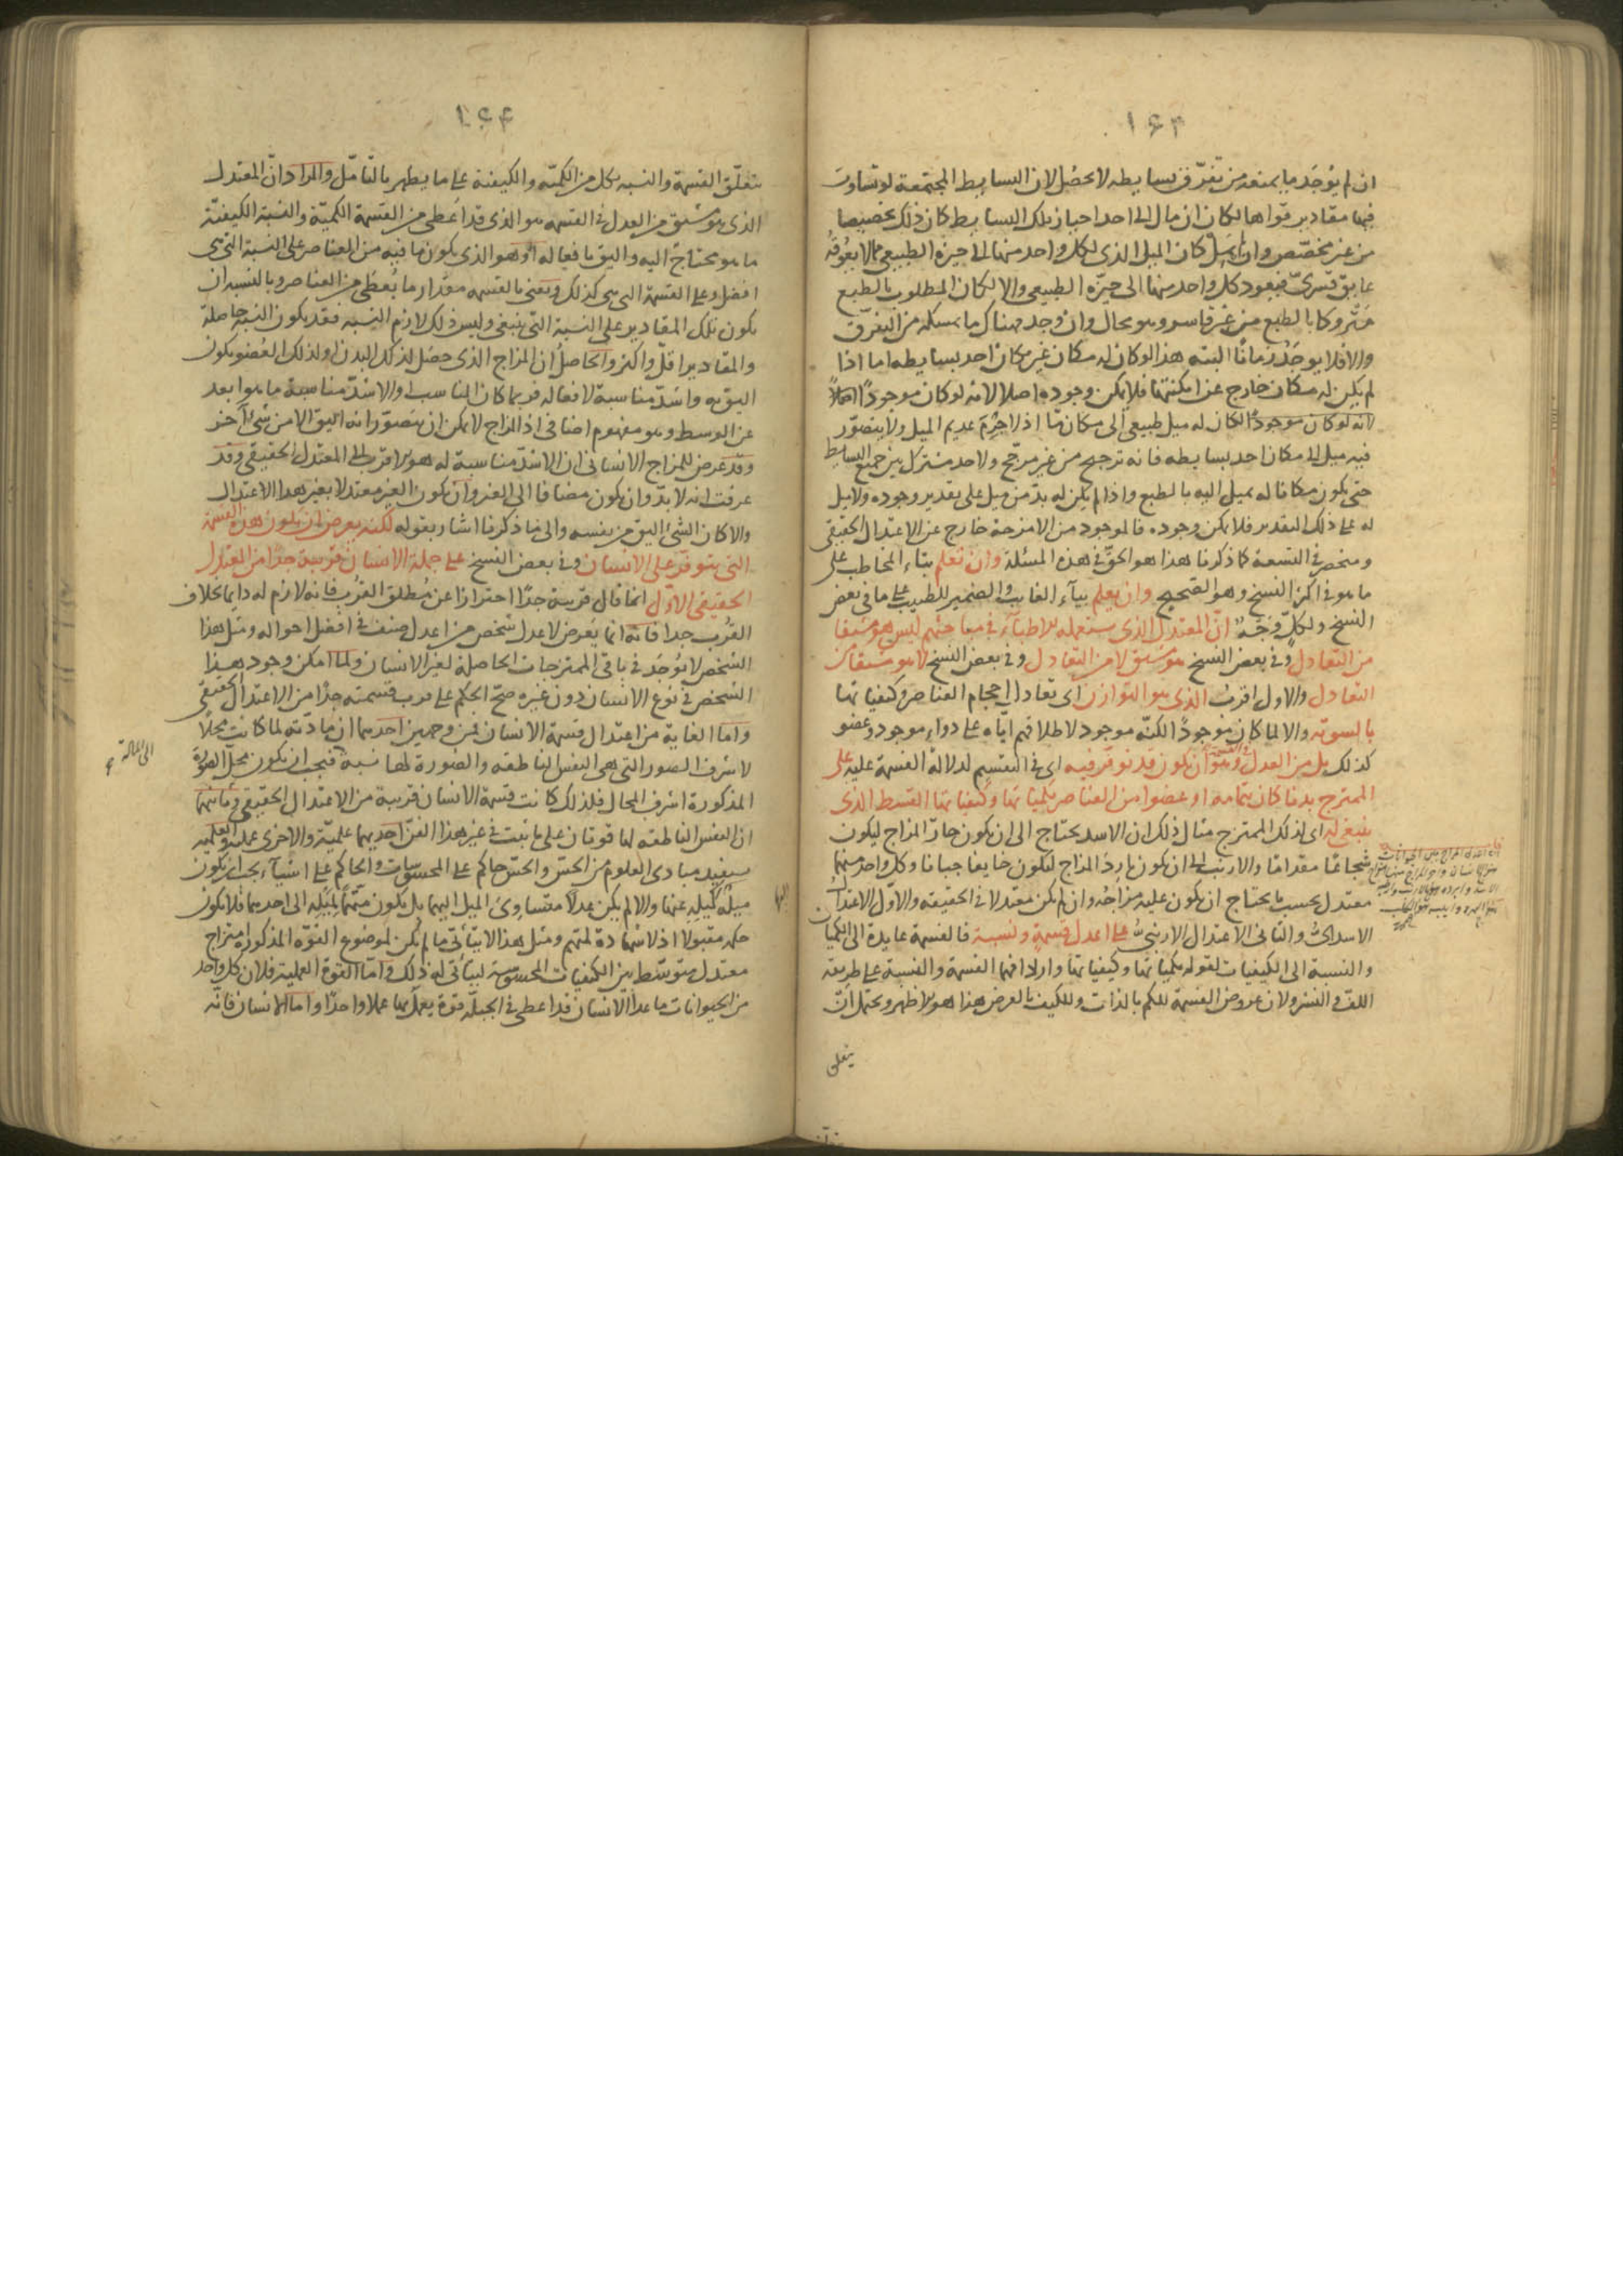 ١٦٣
ان لم يوجد ما يمنعه من تفرّق بسايطه لا يحصل لان البسايط المجتمعة لو تساوت
فيها مقادير قواها لكان ان مال الى احد احياز تلك البسايط كان ذلك تخصيصا
من غير مخصّص وان لم يمل كان الميل الذى لكل واحد منها الى حيزه الطبيعى مما لا يعوقه
عايق قسرىّ فيعود كل واحد منها الى حيّزه الطبيعى والا لكان المطلوب بالطبع
متروكا بالطبع من غير قاسر وهو محال وان وجد هناك ما يمسكه من التفرّق
والا فلا يوجد زمانًا البتة هذا لو كان له مكان غير مكان احد بسايطه اما اذا
لم يكن له مكان خارج عن امكنتها فلا يمكن وجوده اصلا لانه لو كان موجودًا
لانه لو كان موجودًا لكان له ميل طبيعى الى مكان مّا اذ لا جرم عديم الميل ولا يتصوّر
فيه ميل الى مكان احد بسايطه فانه ترجيح من غير مرجّح ولا حد مشترك بين جميع البسايط
حتى يكون مكانا له يميل اليه بالطبع واذا لم يكن له بدّ من ميل على تقدير وجوده ولا ميل
له على ذلك التقدير فلا يمكن وجوده فالموجود من الامزجة خارج عن الاعتدال الحقيقى
ومنحصر فى التسعة كما ذكرنا هذا هو الحق فى هذه المسئلة وان تعلم بتاء المخاطب على
ما هو فى اكثر النسخ وهو الصحيح وان يعلم بيآء الغايب والضمير للطبيب على ما فى بعض
النسخ ولكلّ وجه انّ المعتدل الذى يستعمله الاطبّآء فى مباحثهم ليس هو مشتقا
من التعادل وفى بعض النسخ هو مشتق لا من التعادل وفى بعض النسخ لا هو مشتقا من
التعادل والاول اقرب الذى هو التوازن اى تعادل احجام العناصر وكيفياتها
بالسويّه والا لما كان موجودًا لكنّه موجود لاطلاقهم ايّاه على دواء موجود وعضو
كذلك بل من العدل فى القسمة وهو ان يكون قد توفّر فيه اى فى التقسيم لدلالة القسمة عليه على
الممتزج بدنا كان بتمامه او عضوا من العناصر بكمياتها وكيفياتها القسط الذى
ينبغى له اى لذلك الممتزج مثال ذلك ان الاسد يحتاج الى ان يكون حارّ المزاج ليكون
شجاعًا مقدامًا والارنب الى ان يكون بارد المزاج ليكون خايفا جبانا وكل واحد منهما
معتدل بحسب ما يحتاج ان يكون عليه مزاجُه وان لم يكن معتدلا فى الحقيقه والاوّل الاعتدال
الاسدىّ والثانى الاعتدال الارنبىّ على اعدل قسمة ونسبة فالقسمة عايدة الى الكميات
والنسبة الى الكيفيات لقوله بكمياتها وكيفياتها وارادفهما القسمة والنسبة على طريقه
اللف والنشر ولان عروض القسمة للكم بالذات وللكيف بالعرض هذا هو الاظهر ويحتمل انّ
يتعلق
١٦٤
يتعلّق القسمة والنسبه بكل من الكميّه والكيفية على ما يظهر بالتامّل والمراد انّ المعتدل
الذى هو مشتق من العدل فى القسمه هو الذى قد اُعطى من القسمة الكميّة والنسبة الكيفيّة
ما هو محتاج اليه واليق بافعاله او هو الذى يكون ما فيه من العناصر على النسبة التى هى
افضل وعلى القسمة التى هى كذلك ويعنى بالقسمه مقدار ما يُعطى من العناصر وبالنسبه ان
يكون تلك المقادير على النسبة التى ينبغى وليس ذلك لازم النسبه فقد يكون النسبة حاصلة
والمقادير اقلّ واكثر والحاصل ان المزاج الذى حصل لذلك البدن او لذلك العضو يكون
اليق به واشدّ مناسبة لافعاله فربما كان المناسب او الاشدّ مناسبة ما هو ابعد
عن الوسط وهو مفهوم اضافى اذ المزاج لا يمكن ان يتصوّر انه اليق الا من شئ آخر
وقد عرض للمزاج الانسانى ان الاشدّ مناسبة له هو الاقرب الى المعتدل الحقيقى وقد
عرفت انه لا بدّ وان يكون مضافا الى الغير وان يكون الغير معتدلا بغير هذا الاعتدال
والا كان الشئ اليق من نفسه والى ما ذكرنا اشار بقوله لكنه يعرض ان يكون هذه القسمة
التى يتوفّر على الانسان وفى بعض النسخ على جملة الانسان قريبة جدًّا من المعتدل
الحقيقى الاوّل انما قال قريبة جدًّا احترازا عن مُطلق القُرب فانه لازم له دايما بخلاف
القُرب جدا فانه انما يَعرض لاعدل شخص من اعدل صنف فى افضل احواله ومثل هذا
الشخص لا يُوجَد فى باقى الممتزجات الحاصلة لغير الانسان ولما امكن وجود هذا
الشخص فى نوع الانسان دون غيره صحّ الحكم على قرب قسمته جدًّا من الاعتدال الحقيقى
وامّا الغاية من اعتدال قسمة الانسان فمن وجهين احدهما ان مادّته لما كانت محلّا
لاشرف الصور التى هى النفس الناطقه والصورة لها نسبة فيجب ان يكون محلّ القوّة
المذكورة اشرف المحال فلذلك كانت قسمة الانسان قريبة من الاعتدال الحقيقى وثانيهما
ان النفس الناطقه لها قوتان على ما ثبت فى غير هذا الفنّ احديهما علميّة والاخرى عمليّة والعلميه
يستفيد مبادى العلوم من الحسّ والحسّ حاكم على المحسوسات والحاكم على اشيآء يجب ان يكون
ميلُه كميلِهِ عنها والا لم يكن عدلًا متساوىَ الميل اليها بل يكون متّهمًا بميله الى احديها فلا يكون
حكمه مقبولا اذ لا شهادة لمتهم ومثل هذا لا يتأتّى ما لم يكن لموضوع القوّه المذكورة مزاج
معتدل متوسّط بين الكيفيات المحسوسة ليتأتى له ذلك وامّا القوة العمليّة فلان كل واحد
من الحيوانات ما عدا الانسان قد اعطى فى الجبلّه قوة يعمل بها عملا واحدًا واما الانسان فانّه